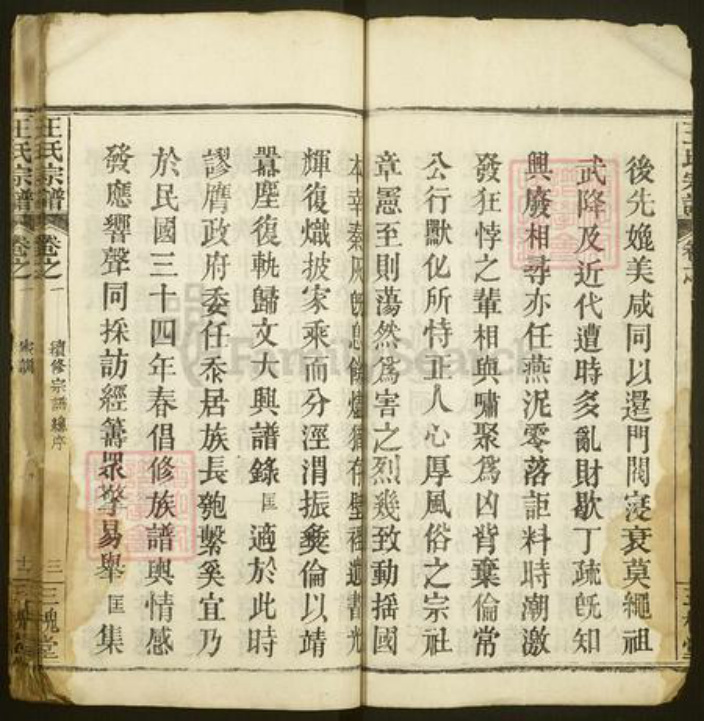 後先媲美咸同以還門閥寖衰莫繩祖
武降及近代遭時多亂財歇丁疏旣知
興廢相尋亦任燕泥零落詎料時潮激
發狂悖之輩相與嘯聚爲凶背棄倫常
公行獸化所恃正人心厚風俗之宗社
章憲至則蕩然爲害之烈幾致動搖國
本幸秦灰旣息餘燼猶存壁社遺書光
輝復熾披家乘而分涇渭振彝倫以靖
囂塵復軌歸文大興譜錄匡適於此時
謬膺政府委任忝居族長匏繫奚宜乃
於民國三十四年春倡修族譜輿情感
發應響聲同採訪經籌眾擎易舉匡集
王氏宗譜
卷之一
續修宗譜總序
三
三槐堂
王氏宗譜
卷之一
家訓
王氏宗譜
卷之
三槐堂
FamilySearch